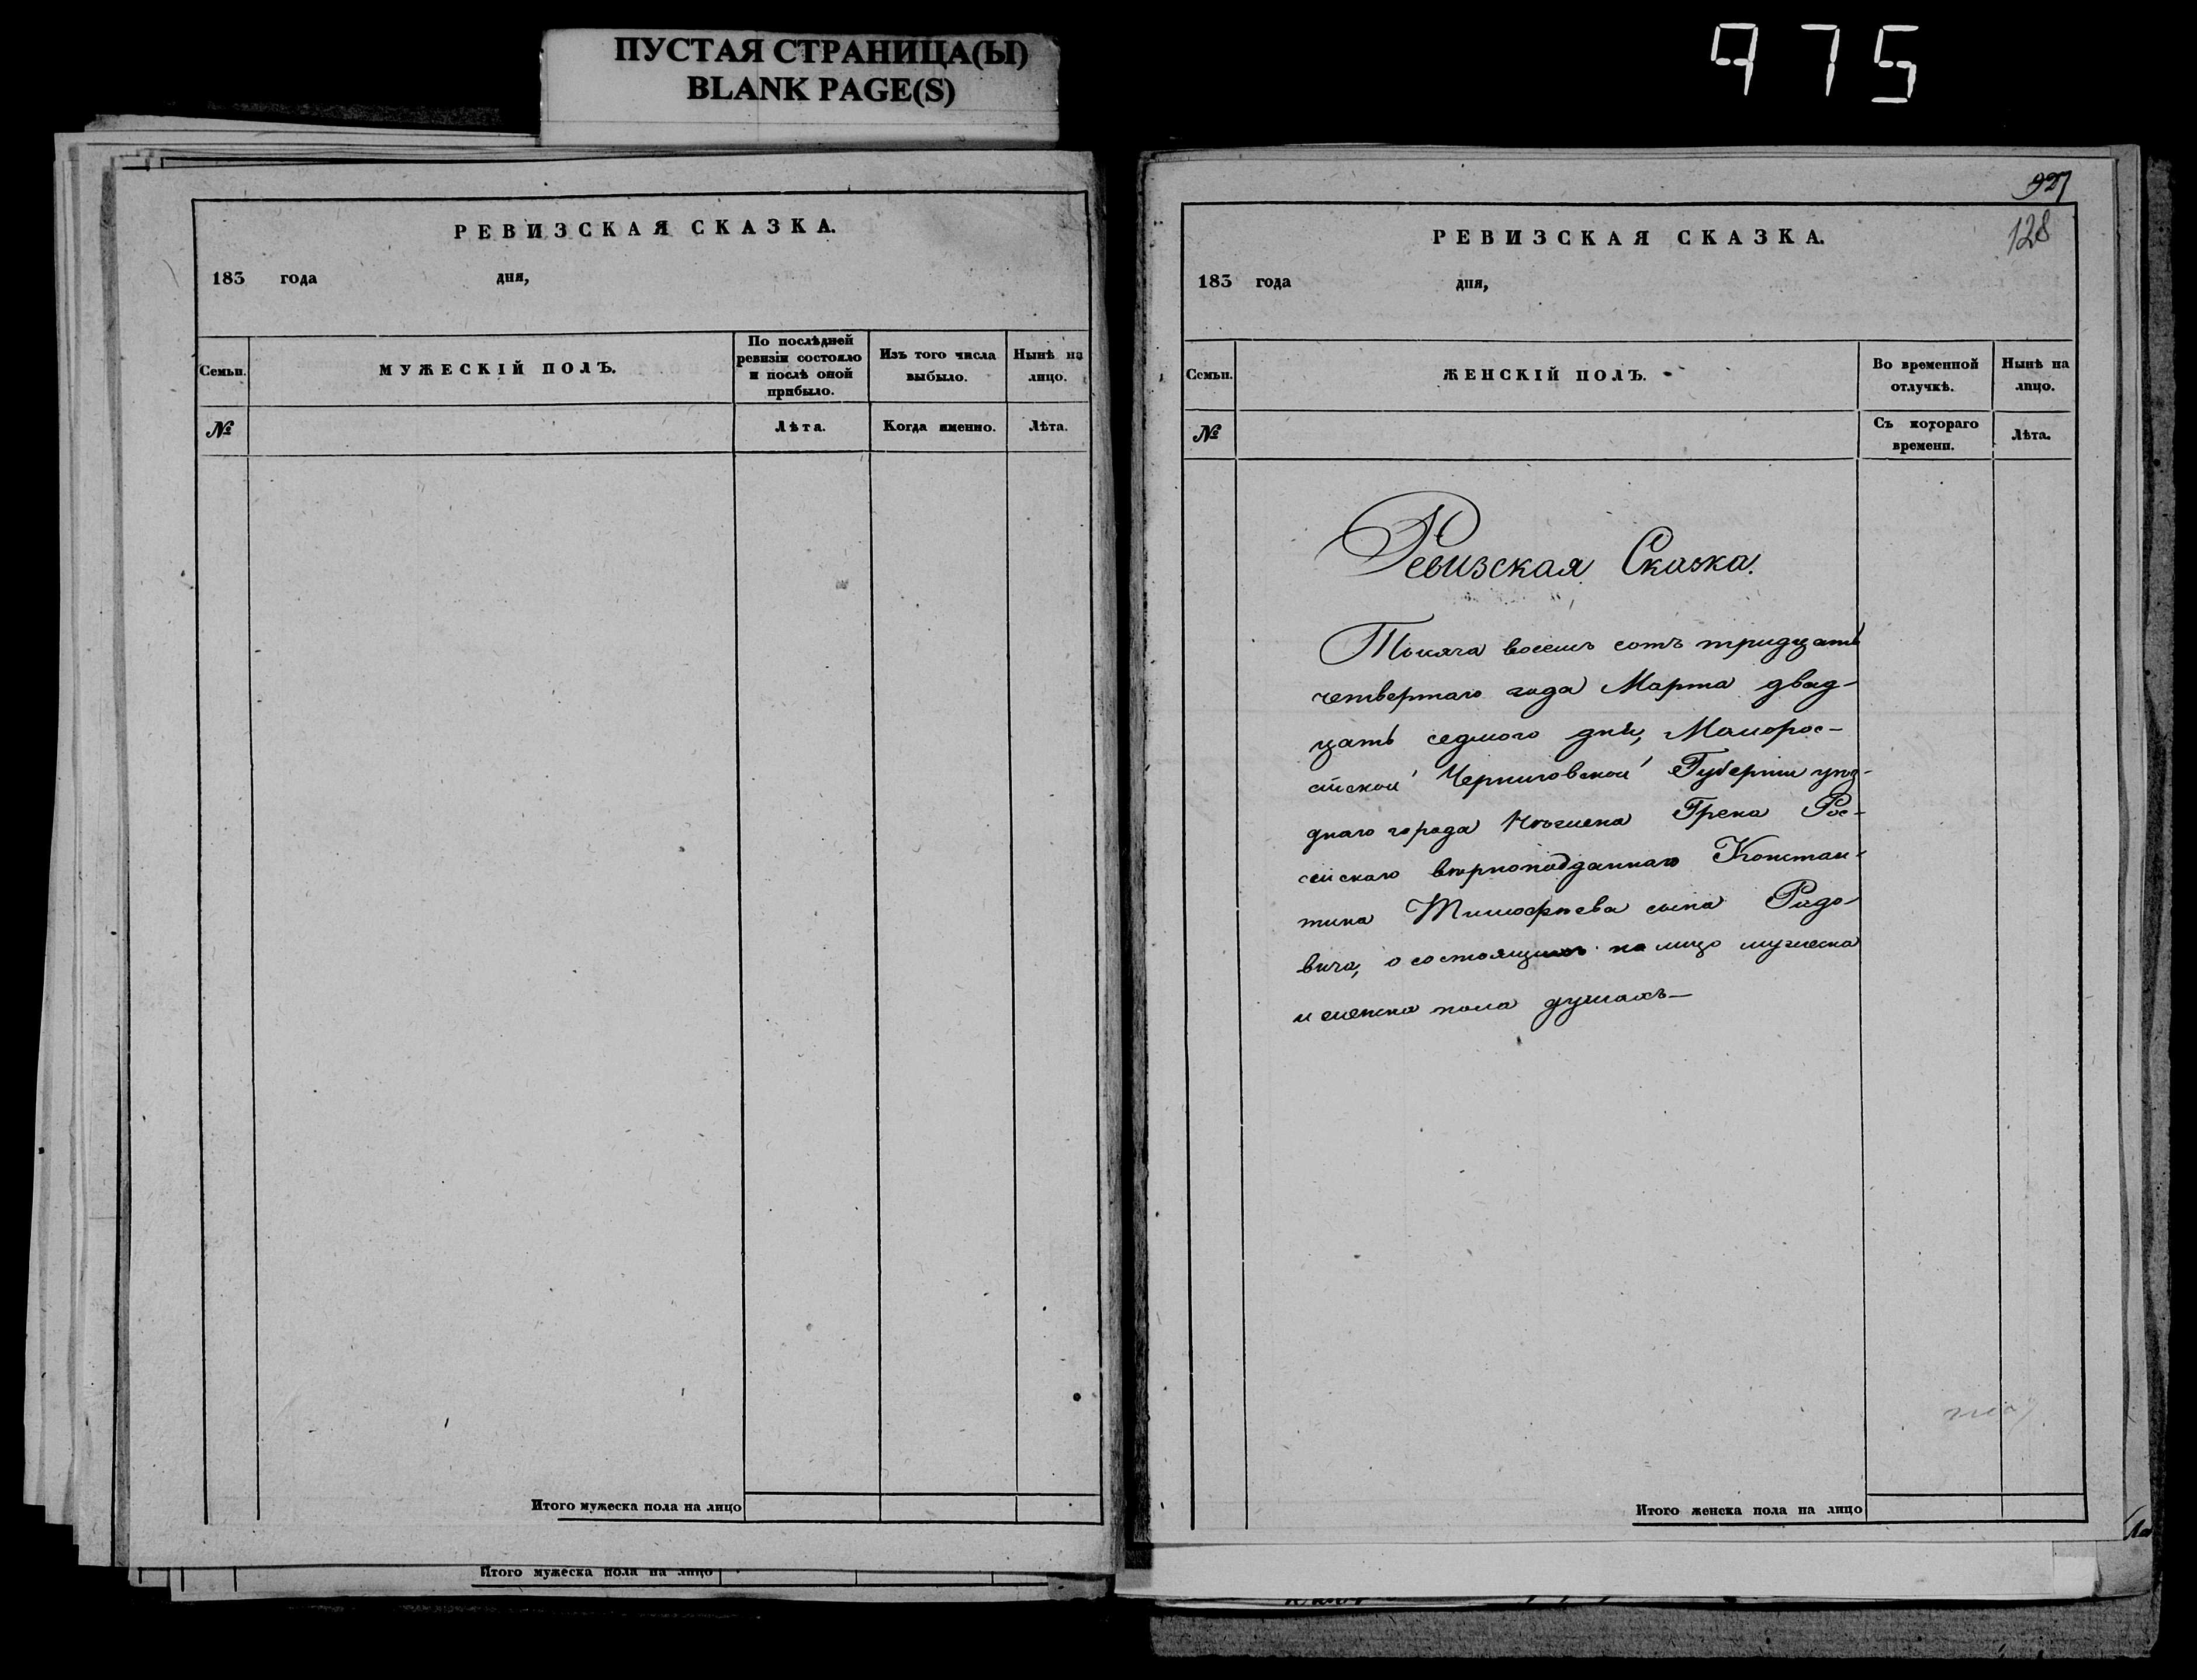 ПУСТАЯ СТРАНИЦА(Ы)
BLANK PAGE(S)
975
РЕВИЗСКАЯ СКАЗКА.
183 года дня,
Семьи.
МУЖЕСКІЙ ПОЛЪ.
По послѣдней
ревизіи состояло
и послѣ оной
прибыло.
Изъ того числа
выбыло.
Нынѣ на
лицо.
№
Лѣта.
Когда именно.
Лѣта.
Итого мужеска пола на лицо
Итого мужеска пола на лицо
927
128
РЕВИЗСКАЯ СКАЗКА.
183 года дня,
Семьи.
ЖЕНСКІЙ ПОЛЪ.
Во временной
отлучкѣ.
Нынѣ на
лицо.
№
Съ котораго
времени.
Лѣта.
Ревизская Сказка.
Тысяча восемь сотъ тридцать
четвертаго года Марта двад-
цать седмого дня, Малорос-
сійской Черниговской Губерніи уѣз-
днаго города Нѣжина Грека Рос-
сійскаго вѣрноподданнаго Констан-
тина Тимофѣева сына Радо-
вича, о состоящихъ на лицо мужеска
и женска пола душахъ—
Итого женска пола на лицо